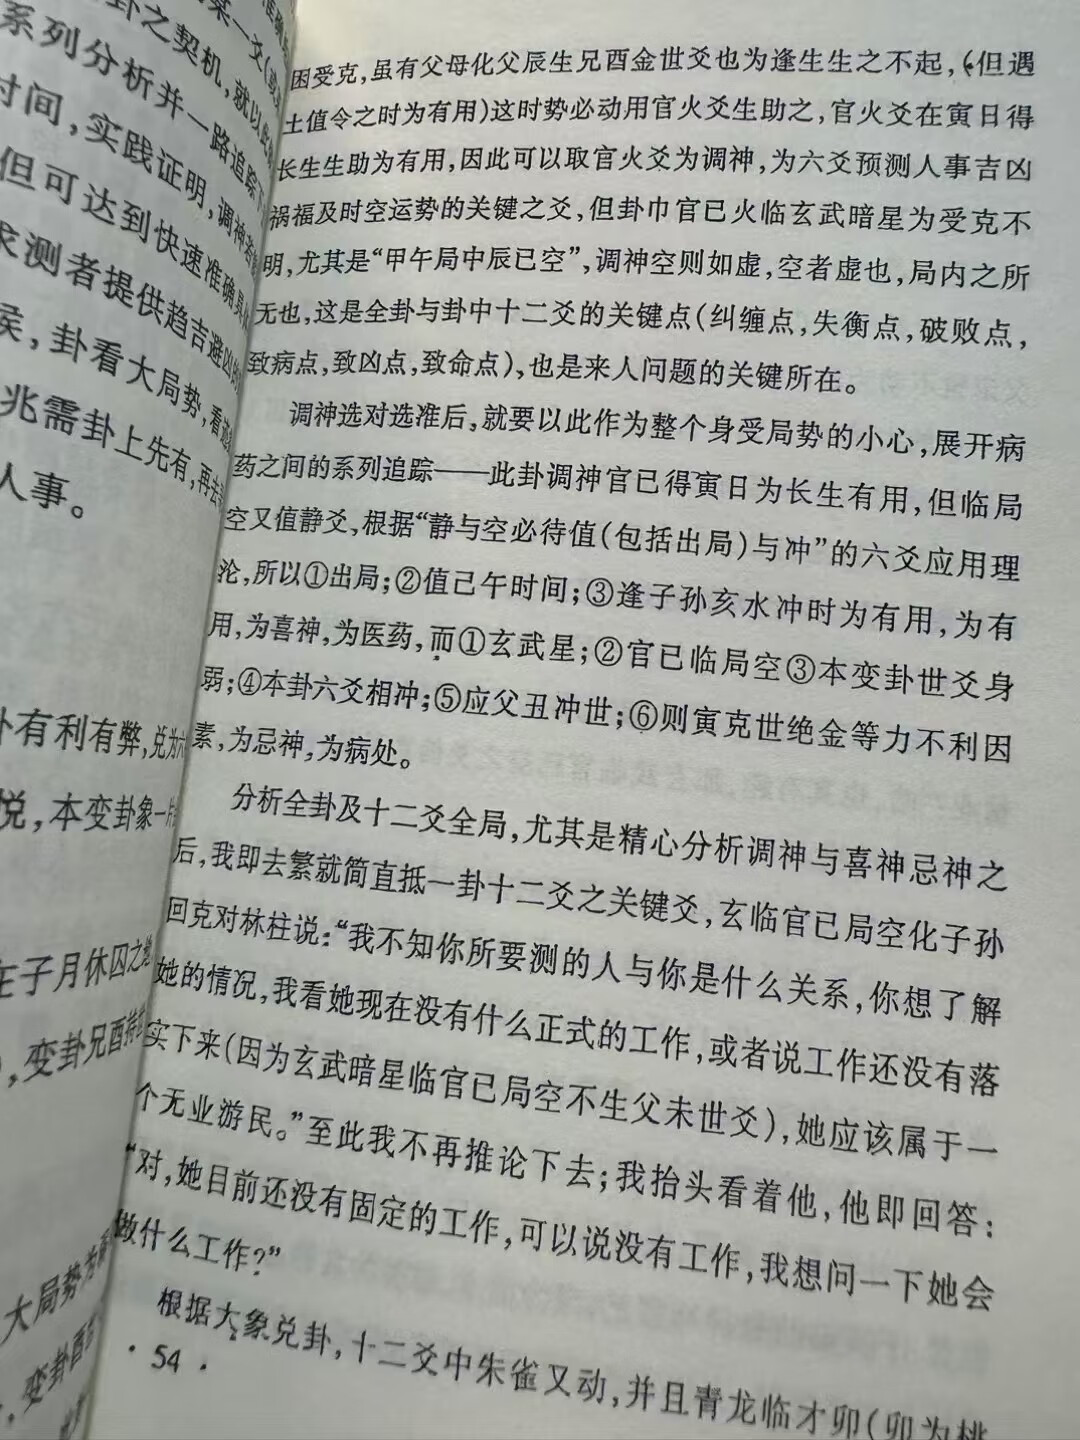 某一爻(
卦之契机,就以此
系列分析并一路追踪下
时间,实践证明,调神若
但可达到快速准确具
求测者提供趋吉避凶的
侯,卦看大局势,看
兆需卦上先有,再去
人事。
卦有利有弊,兑为六
悦,本变卦象一片
在子月休囚之
,变卦兄酉持
大局势为
,变卦酉
困受克,虽有父母化父辰生兄酉金世爻也为逢生生之不起,(但遇
土值令之时为有用)这时势必动用官火爻生助之,官火爻在寅日得
长生生助为有用,因此可以取官火爻为调神,为六爻预测人事吉凶
祸福及时空运势的关键之爻,但卦巾官已火临玄武暗星为受克不
明,尤其是“甲午局中辰已空”,调神空则如虚,空者虚也,局内之所
无也,这是全卦与卦中十二爻的关键点(纠缠点,失衡点,破败点,
致病点,致凶点,致命点),也是来人问题的关键所在。
调神选对选准后,就要以此作为整个身受局势的小心,展开病
药之间的系列追踪——此卦调神官已得寅日为长生有用,但临局
空又值静爻,根据“静与空必待值(包括出局)与冲”的六爻应用理
沦,所以①出局;②值己午时间;③逢子孙亥水冲时为有用,为有
用,为喜神,为医药,而①玄武星;②官已临局空③本变卦世爻身
弱;④本卦六爻相冲;⑤应父丑冲世;⑥则寅克世绝金等力不利因
素,为忌神,为病处。
分析全卦及十二爻全局,尤其是精心分析调神与喜神忌神之
后,我即去繁就简直抵一卦十二爻之关键爻,玄临官已局空化子孙
回克对林柱说:“我不知你所要测的人与你是什么关系,你想了解
她的情况,我看她现在没有什么正式的工作,或者说工作还没有落
实下来(因为玄武暗星临官已局空不生父未世爻),她应该属于一
个无业游民。”至此我不再推论下去;我抬头看着他,他即回答:
“对,她目前还没有固定的工作,可以说没有工作,我想问一下她会
做什么工作?”
根据大象兑卦,十二爻中朱雀又动,并且青龙临才卯(卯为桃
·54·